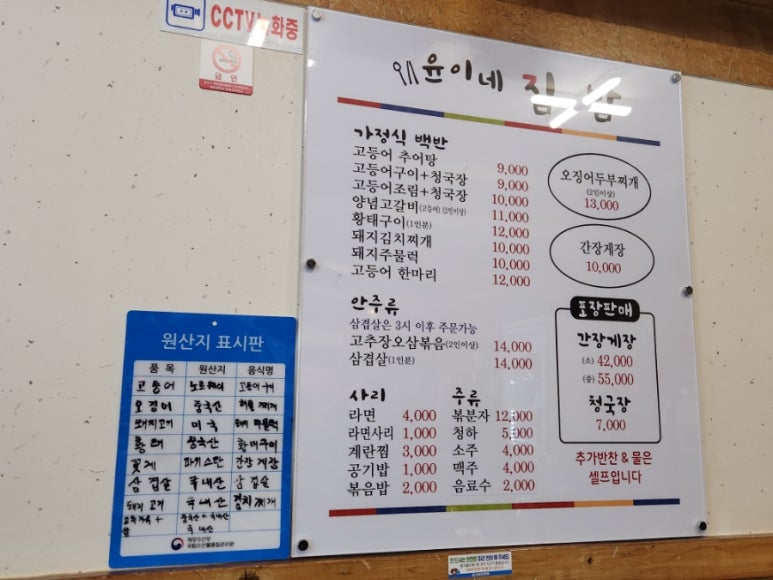 CCTV녹화중
금연
윤이네 집밥
가정식 백반
고등어 추어탕 9,000
고등어구이+청국장 9,000
고등어조림+청국장 10,000
양념고갈비(고등어) (2인이상) 11,000
황태구이(1인분) 12,000
돼지김치찌개 10,000
돼지주물럭 10,000
고등어 한마리 12,000
오징어두부찌개
(2인이상)
13,000
간장게장
10,000
안주류
삼겹살은 3시 이후 주문가능
고추장오삼볶음(2인이상) 14,000
삼겹살(1인분) 14,000
포장판매
간장게장
(소) 42,000
(중) 55,000
청국장
7,000
사리
라면 4,000
라면사리 1,000
계란찜 3,000
공기밥 1,000
볶음밥 2,000
주류
볶분자 12,000
청하 5,000
소주 4,000
맥주 4,000
음료수 2,000
추가반찬 & 물은
셀프입니다
원산지 표시판
품 목 원산지 음식명
고등어 노르웨이 고등어구이
오징어 중국산 찌개
돼지고기 미국 돼지 주물럭
황태 중국산 황태구이
꽃게 파키스탄 간장게장
삼겹살 국내산 삼겹살
돼지고기 국내산 김치찌개
중국산+국내산
쌀 국내산
해양수산부
국립수산물품질관리원